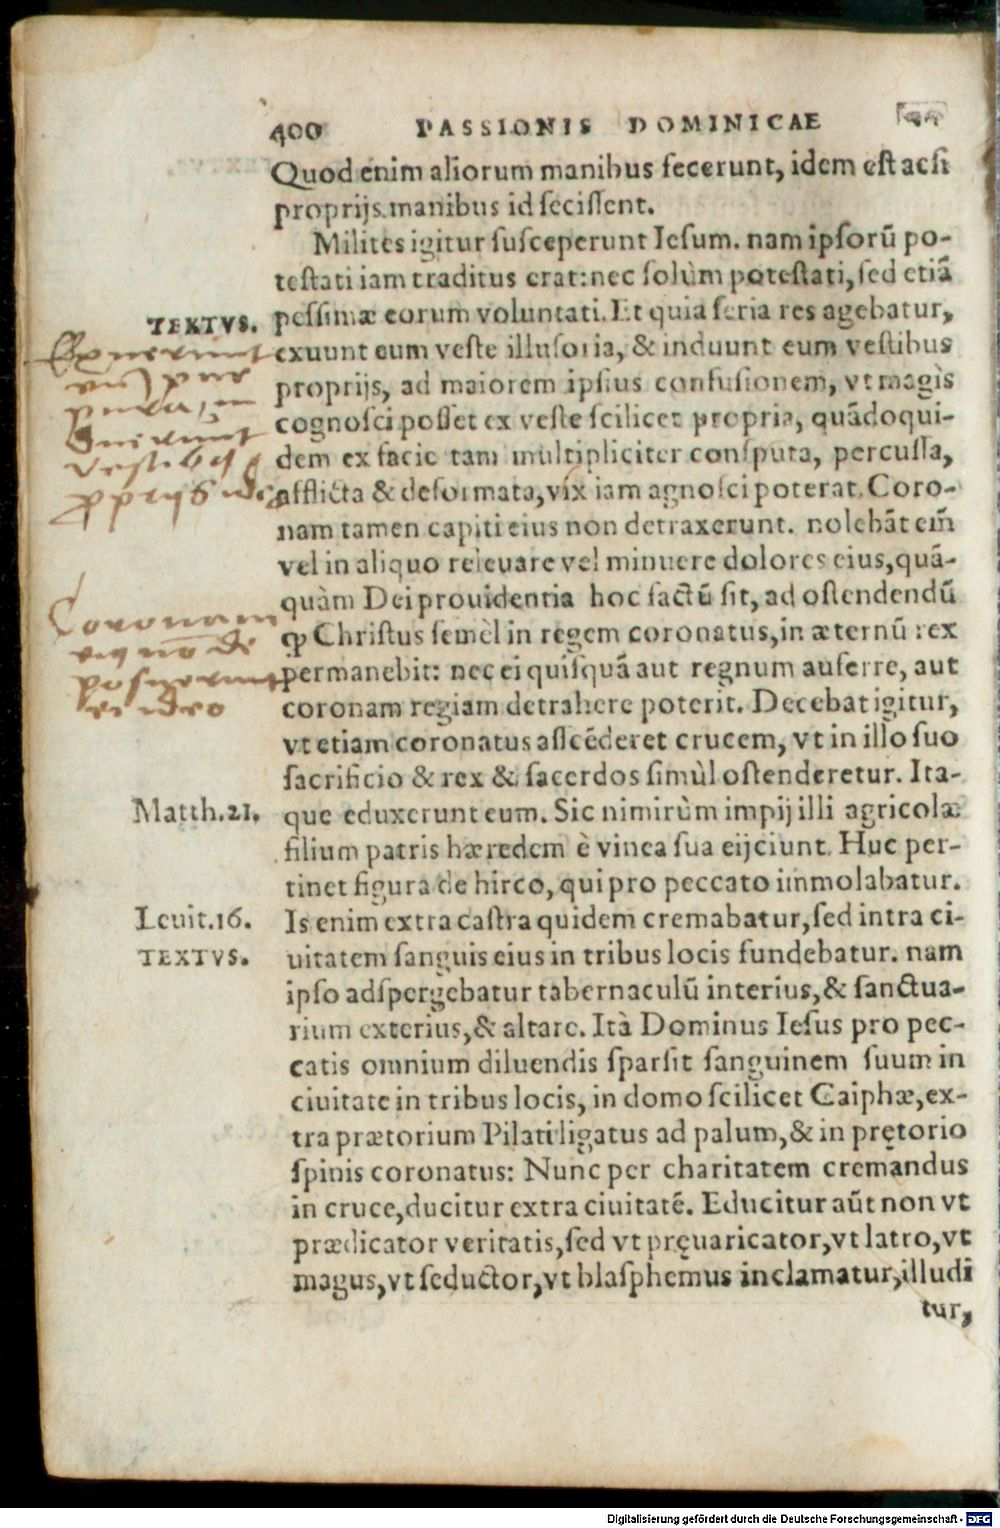 400 PASSIONIS DOMINICAE
Quod enim aliorum manibus fecerunt, idem est acsi
proprijs manibus id fecissent.
Milites igitur susceperunt Iesum. nam ipsorũ po-
testati iam traditus erat: nec solùm potestati, sed etiã
TEXTVS. pessimæ eorum voluntati. Et quia seria res agebatur,
exuunt eum veste illusoria, & induunt eum vestibus
proprijs, ad maiorem ipsius confusionem, vt magìs
cognosci posset ex veste scilicet propria, quãdoqui-
dem ex facie tam multipliciter consputa, percussa,
afflicta & deformata, vix iam agnosci poterat. Coro-
nam tamen capiti eius non detraxerunt. nolebãt em̃
vel in aliquo releuare vel minuere dolores eius, quã-
quàm Dei prouidentia hoc factũ sit, ad ostendendũ
ꝙ Christus semèl in regem coronatus, in æternũ rex
permanebit: nec ei quisquã aut regnum auferre, aut
coronam regiam detrahere poterit. Decebat igitur,
vt etiam coronatus ascẽderet crucem, vt in illo suo
sacrificio & rex & sacerdos simùl ostenderetur. Ita-
Matth.21. que eduxerunt eum. Sic nimirùm impij illi agricolæ
filium patris hæredem è vinea sua eijciunt. Huc per-
tinet figura de hirco, qui pro peccato immolabatur.
Leuit.16. Is enim extra castra quidem cremabatur, sed intra ci-
TEXTVS. uitatem sanguis eius in tribus locis fundebatur. nam
ipso adspergebatur tabernaculũ interius, & sanctua-
rium exterius, & altare. Ità Dominus Iesus pro pec-
catis omnium diluendis sparsit sanguinem suum in
ciuitate in tribus locis, in domo scilicet Caiphæ, ex-
tra prætorium Pilati ligatus ad palum, & in prętorio
spinis coronatus: Nunc per charitatem cremandus
in cruce, ducitur extra ciuitatẽ. Educitur aũt non vt
prædicator veritatis, sed vt pręuaricator, vt latro, vt
magus, vt seductor, vt blasphemus inclamatur, illudi
tur,
Coronam
posuerunt
Digitalisierung gefördert durch die Deutsche Forschungsgemeinschaft - DFG